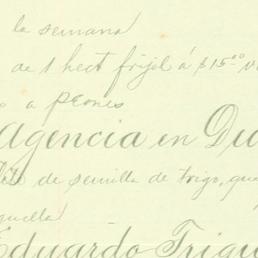 la semana
de 1 hect frijol á $15.00
a peones
Agencia en Du
de semilla de trigo, que
Eduardo Trigu